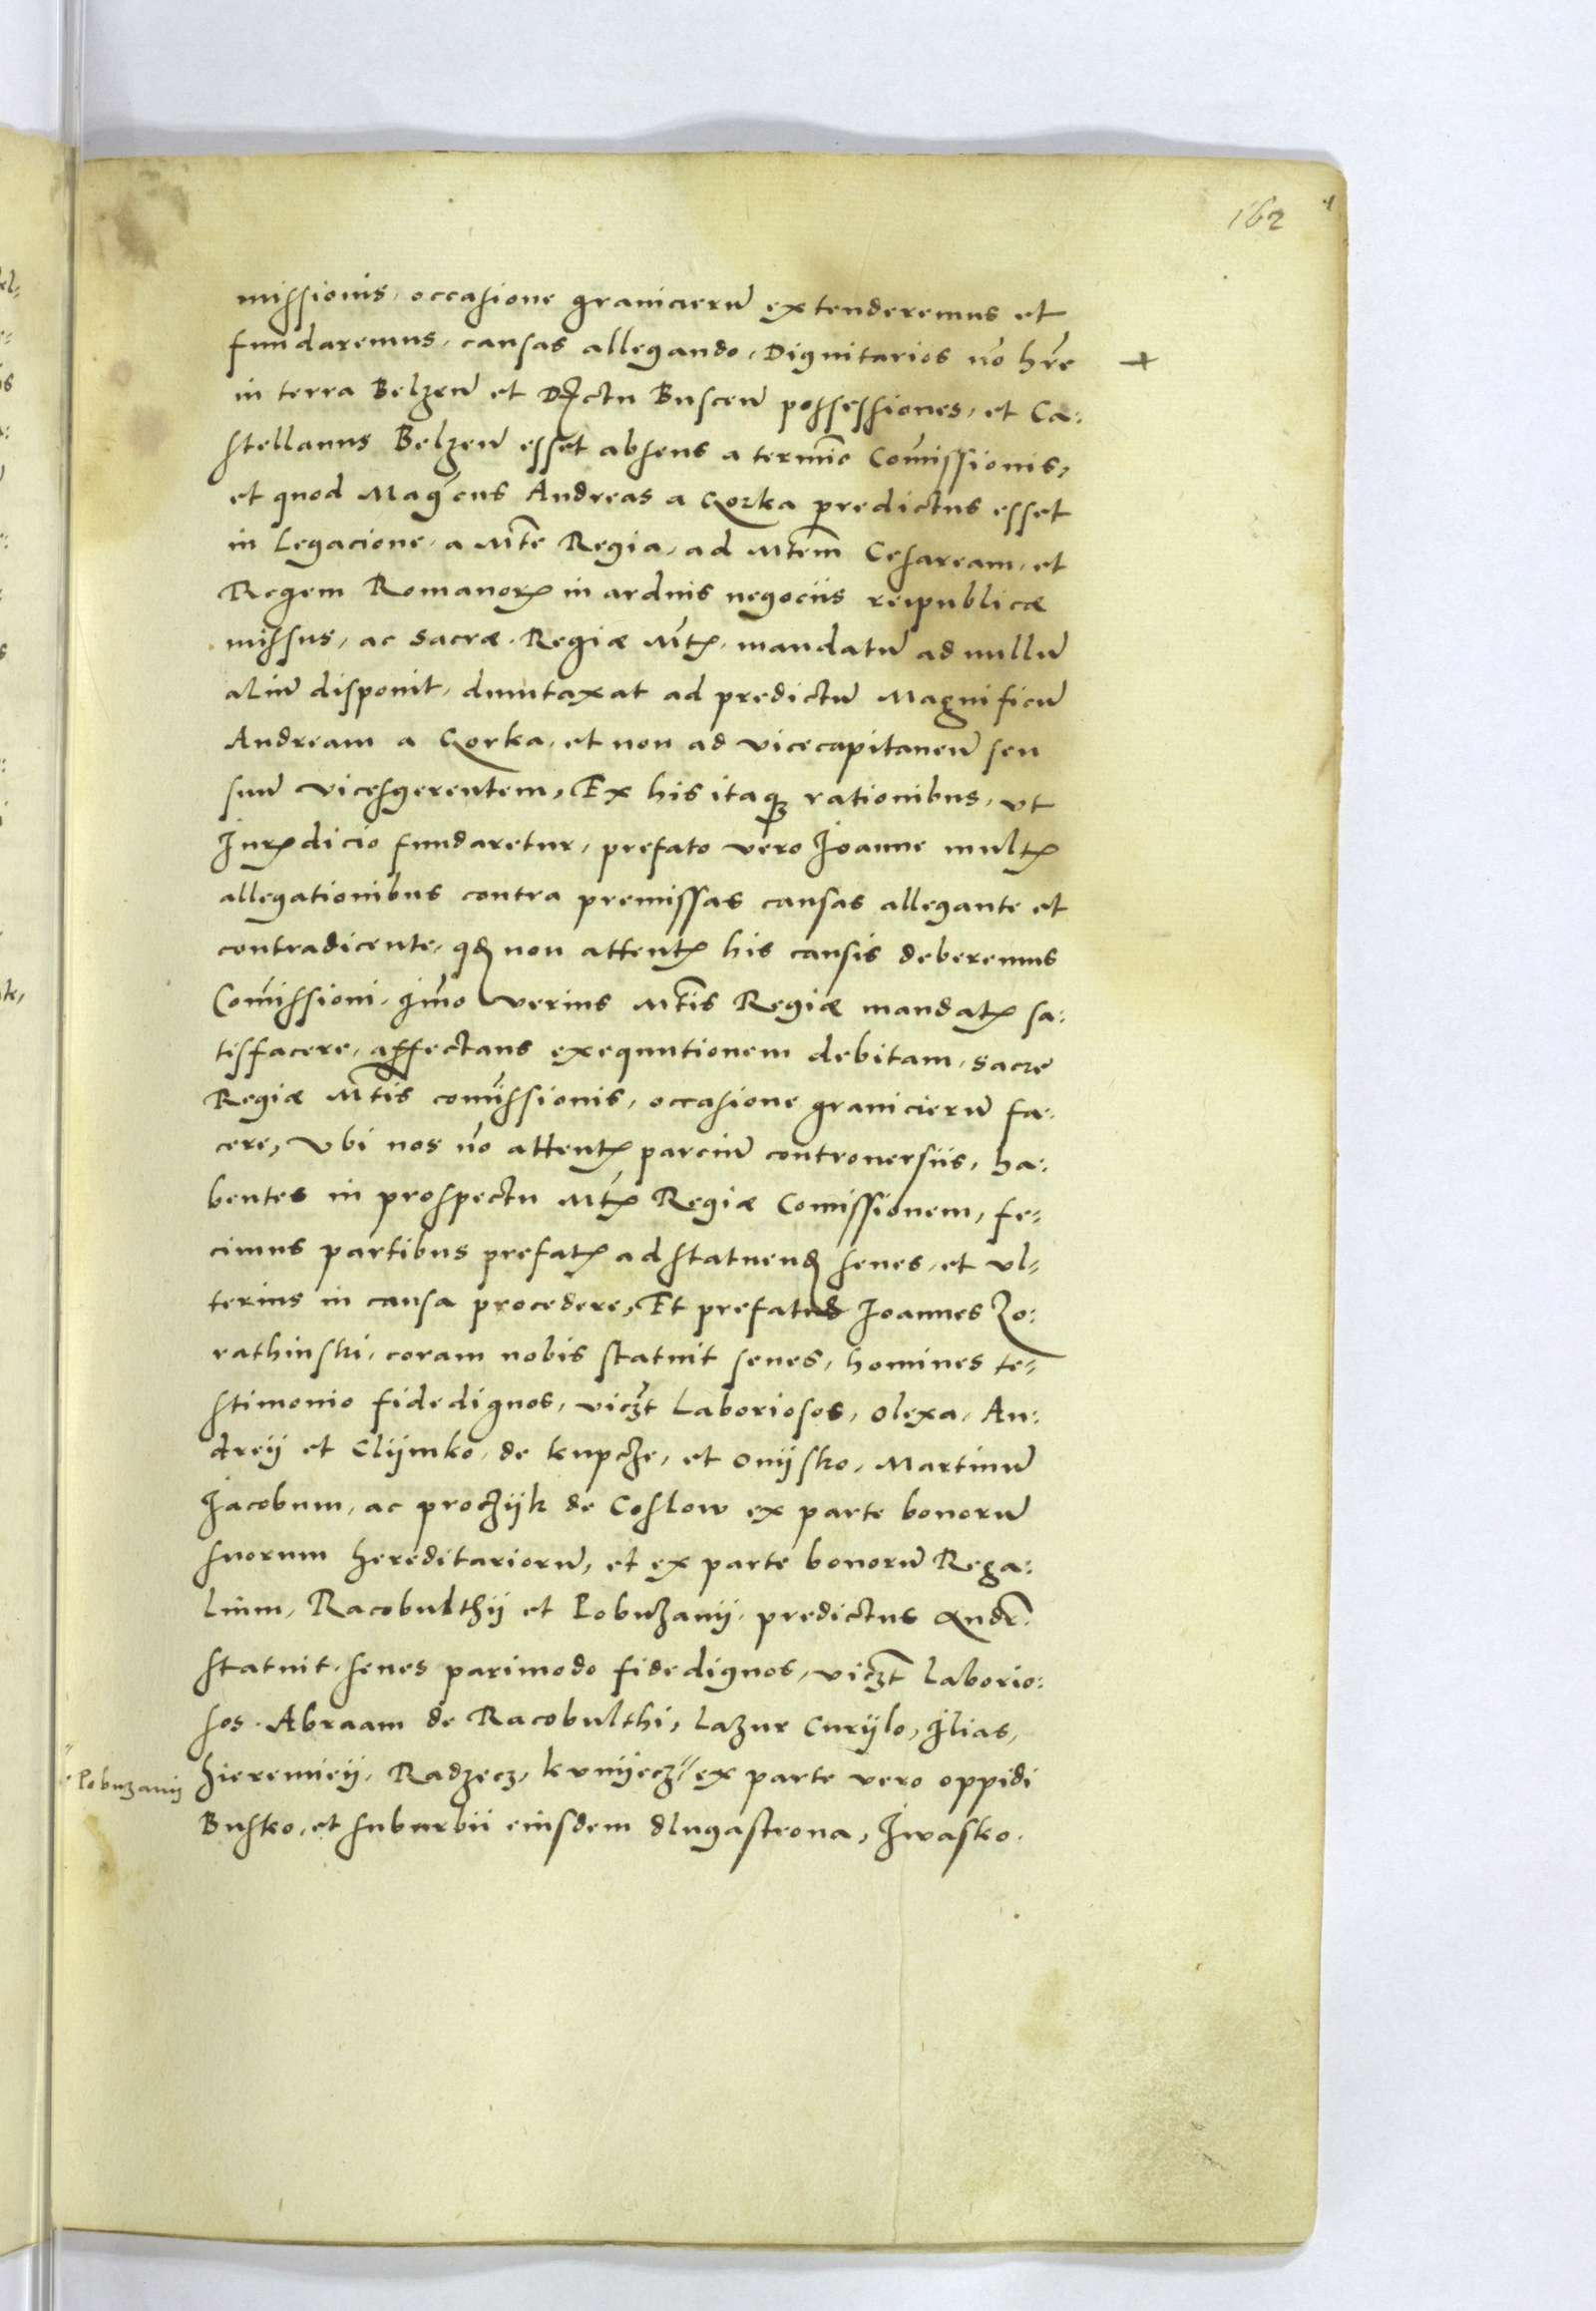 162
missionis, occasione granicierũ extenderemus et
fundaremus, causas allegando, Dignitarios nõ hr̃e +
in terra Belzeñ et Dꝭctu Busceñ possessiones, et Ca:
stellanus Belzeñ esset absens a termĩo Com̃issionis,
et quod Magc̃us Andreas a Gorka predictus esset
in Legacione, a Mt̃e Regia, ad Mtem̃ Cesaream, et
Regem Romanorꝭ in arduis negociis reipublicæ
missus, ac sacræ Regiæ Mt̃ꝭ mandatũ ad nullũ
aliũ disponit, dumtaxat ad predictũ Magnificũ
Andream a Gorka, et non ad vicecapitaneũ seu
suũ vicesgerentem, Ex his itaqꝫ rationibus, vt
Jurꝭdicio fundaretur, prefato vero Joanne multꝭ
allegationibus contra premissas causas allegante et
contradicente, qđ non attentꝭ his causis deberemus
Com̃issioni, ỹmo verius Mt̃is Regiæ mandatꝭ sa:
tisfacere, affectans exequutionem debitam, sacre
Regiæ Mt̃is com̃issionis, occasione granicierũ fa:
cere, Vbi nos nõ attentꝭ parciũ controuersiis, ha:
bentes in prospectu Mt̃ꝭ Regiæ Com̃issionem, fe-
cimus partibus prefatꝭ ad statuenđ senes, et vl-
terius in causa procedere, Et prefatus Joannes Zo:
rathinski, coram nobis statuit senes, homines te-
stimonio fidedignos, vicꝫt Laboriosos, Olexa, An:
drey et Clijmko, de kupcze, et Onijsko, Martinũ
Jacobum, ac proczijk de Coslow ex parte bonorũ
suorum hereditariorũ, et ex parte bonorũ Rega:
lium, Racobulthy et Pobuzanij, predictus Andr̃:
statuit, senes parimodo fidedignos, vicꝫt Laborio:
sos Abraam de Racobulthi, Lazur Curijlo, Jlias,
Hieremieij, Radzecz, kunijecz ״ ex parte vero oppidi
״ Pobuzanij
Busko, et suburbii eiusdem dlugastrona, Jwasko.